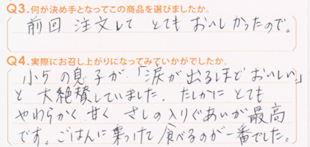 Q3.何が決め手となってこの商品を選びましたか。
前回 注文して とても おいしかったので。
Q4.実際にお召し上がりになってみていかがでしたか。
小5の息子が「涙が出るほどおいしい」
と 大絶賛していました。たしかに とても
やわらかく 甘く さしの入りぐあいが 最高
です。ごはんに乗っけて 食べるのが一番でした。